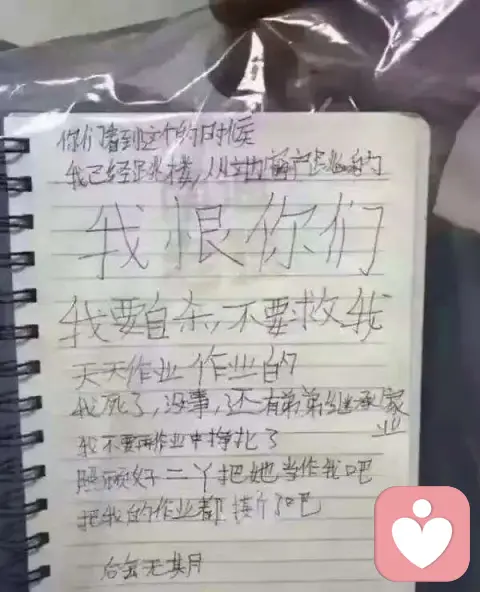 你们看到这个的时候
我已经跳楼,从
我恨你们
我要自杀,不要救我
天天作业作业的
我死了,没事,还有弟弟继承家业
我不要再作业中挣扎了
照顾好二丫把她当作我吧
把我的作业都 了吧
后会无期